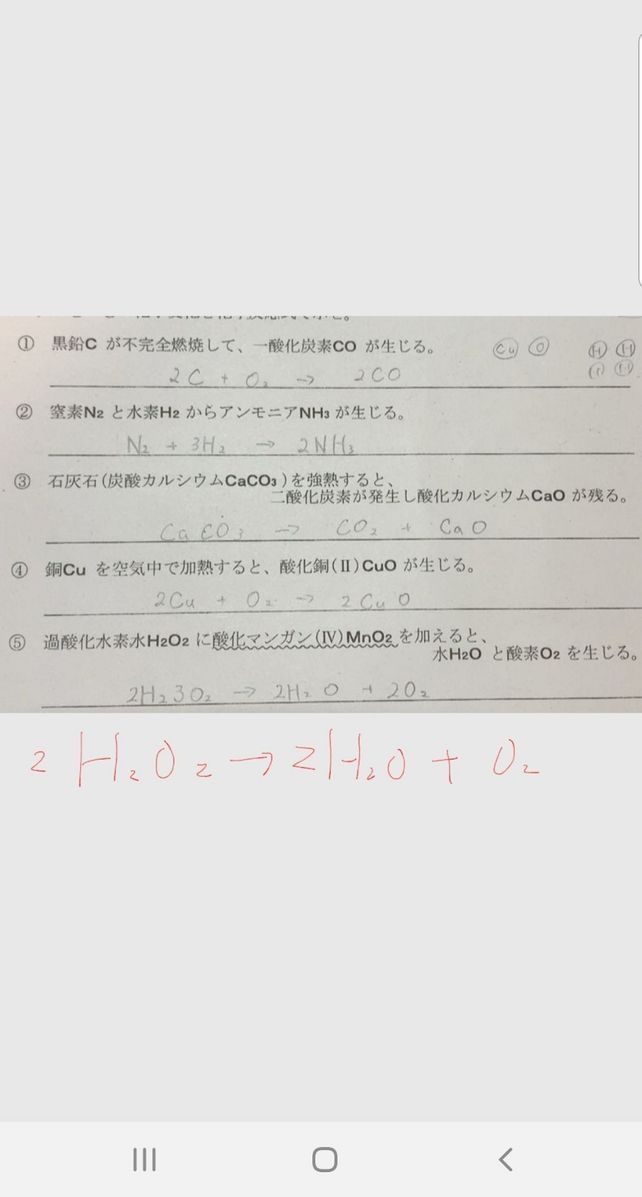 ① 黒鉛C が不完全燃焼して、一酸化炭素CO が生じる。
Cu O H H
H H
2C + O₂ → 2CO
② 窒素N₂ と水素H₂ からアンモニアNH₃ が生じる。
N₂ + 3H₂ → 2NH₃
③ 石灰石(炭酸カルシウムCaCO₃)を強熱すると、
二酸化炭素が発生し酸化カルシウムCaO が残る。
CaCO₃ → CO₂ + CaO
④ 銅Cu を空気中で加熱すると、酸化銅(Ⅱ)CuO が生じる。
2Cu + O₂ → 2CuO
⑤ 過酸化水素水H₂O₂ に酸化マンガン(Ⅳ)MnO₂ を加えると、
水H₂O と酸素O₂ を生じる。
2H₂3O₂ → 2H₂O + 2O₂
2H₂O₂ → 2H₂O + O₂